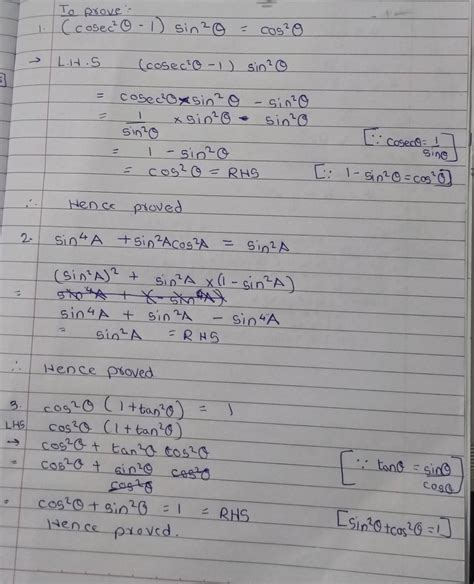 To prove:
1. (cosec²θ - 1) sin²θ = cos²θ
→ L.H.S (cosec²θ - 1) sin²θ
= cosec²θ × sin²θ - sin²θ
= 1/sin²θ × sin²θ - sin²θ [∵ cosecθ = 1/sinθ]
= 1 - sin²θ
= cos²θ = RHS [∵ 1 - sin²θ = cos²θ]
∴ Hence proved
2. sin⁴A + sin²Acos²A = sin²A
(sin²A)² + sin²A × (1 - sin²A)
=
sin⁴A + sin²A - sin⁴A
= sin²A = RHS
∴ Hence proved
3. cos²θ (1 + tan²θ) = 1
LHS cos²θ (1 + tan²θ)
→ cos²θ + tan²θ cos²θ
= cos²θ + sin²θ/cos²θ cos²θ [∵ tanθ = sinθ/cosθ]
= cos²θ + sin²θ = 1 = RHS [sin²θ + cos²θ = 1]
Hence proved.